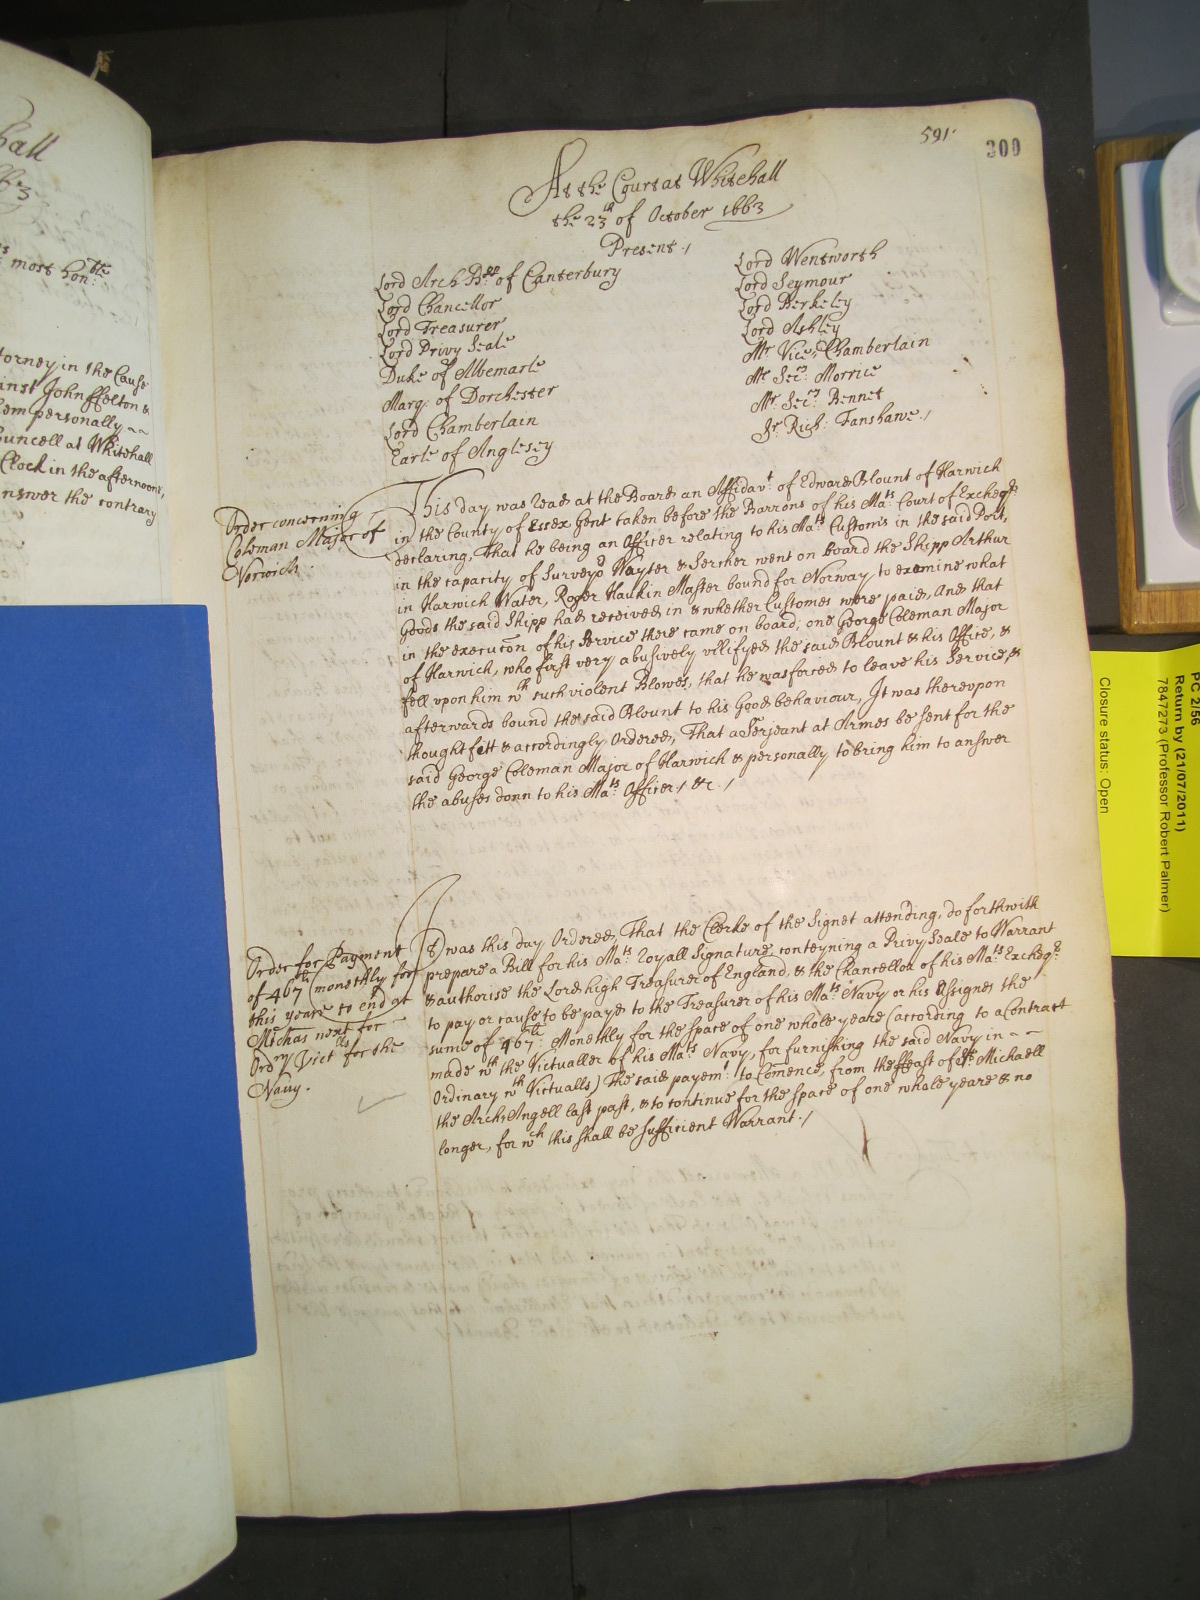 hall
663
most hon:ble
torney in the Cause
inst John ffelton &
em personally ~~
ouncell at Whitehall
Clock in the afternoon,
nswer the contrary
591.
300
At the Court at Whitehall
the 23th of October 1663
Present /
Lord Arch Bpp of Canterbury
Lord Chancellor
Lord Treasurer
Lord Privy Seale
Duke of Albemarle
Marq. of Dorchester
Lord Chamberlain
Earle of Anglesey
Lord Wentworth
Lord Seymour
Lord Berkeley
Lord Ashley
Mr Vice-Chamberlain
Mr Secry Morrice
Mr Secry Bennet
Sr Rich: Fanshawe /
Order concerning
Coleman Major of
Norwich.
This day was read at the Board an Affidavt. of Edward Blount of Harwich
in the County of Essex Gent taken before the Barrons of his Mats Court of Excheqr
declaring, That he being an Officer relating to his Mats Customs in the said Port,
in the capacity of Surveyor Wayter & Sercher went on board the Shipp Arthur
in Harwich Water, Roger Haukin Master bound for Norway, to examine what
Goods the said Shipp had received in & whether Customes were paid, And that
in the execucon of his Service there came on board, one George Coleman Major
of Harwich, who first very abusively villifyed the said Blount & his Office, &
fell upon him wth such violent Blowes, that he was forced to leave his Service, &
afterwards bound the said Blount to his Good behaviour, It was thereupon
thought fitt & accordingly Ordered, That a Serjeant at Armes be sent for the
said George Coleman Major of Harwich & personally to bring him to answer
the abuses donn to his Mats Officer / &c. /
Order for Payment
of 467ll monethly for
this yeare to end at
Michas next for
Ordry Victlls for the
Navy.
It was this day Ordered, That the Clerke of the Signet attending, do forthwith
prepare a Bill for his Mats royall Signature, conteyning a Privy Seale to Warrant
& authorise the Lord high Treasurer of England, & the Chancellor of his Mats Excheqr
to pay or cause to be payd to the Treasurer of his Mats Navy or his Assignes the
sume of 467ll: Monethly for the space of one whole yeare (according to a Contract
made wth the Victualler of his Mats Navy, for furnishing the said Navy in ~~
Ordinary wth Victualls) The said payemt. to Comence, from the ffeast of St. Michaell
the Arch-Angell last past, & to continue for the space of one whole yeare & no
longer, for wch this shall be sufficient Warrant. /
PC 2/56
Return by (21/07/2011)
7847273 (Professor Robert Palmer)
Closure status: Open